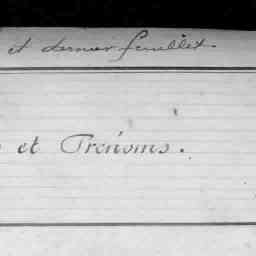 et dernier feuillet.
et Prénoms.